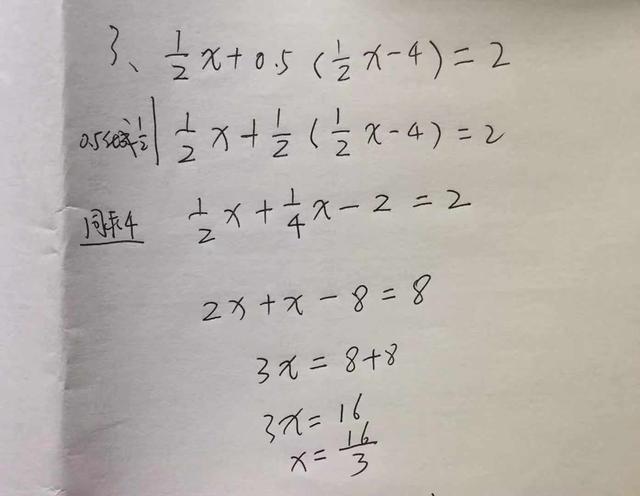 3、 1/2 x + 0.5 (1/2 x - 4) = 2
0.5 1/2 | 1/2 x + 1/2 (1/2 x - 4) = 2
同乘4 1/2 x + 1/4 x - 2 = 2
2x + x - 8 = 8
3x = 8 + 8
3x = 16
x = 16/3